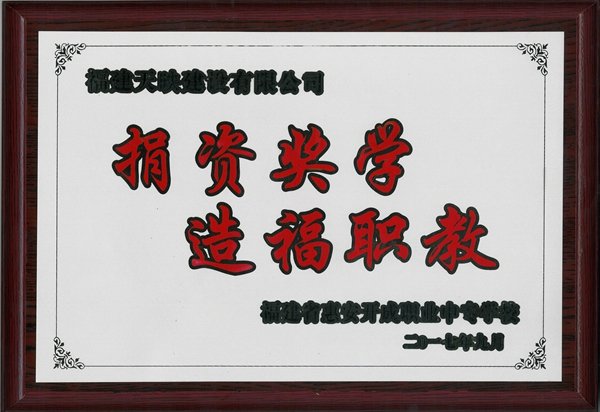 福建天映建设有限公司
捐资奖学
造福职教
福建省惠安开成职业中专学校
二0一七年九月